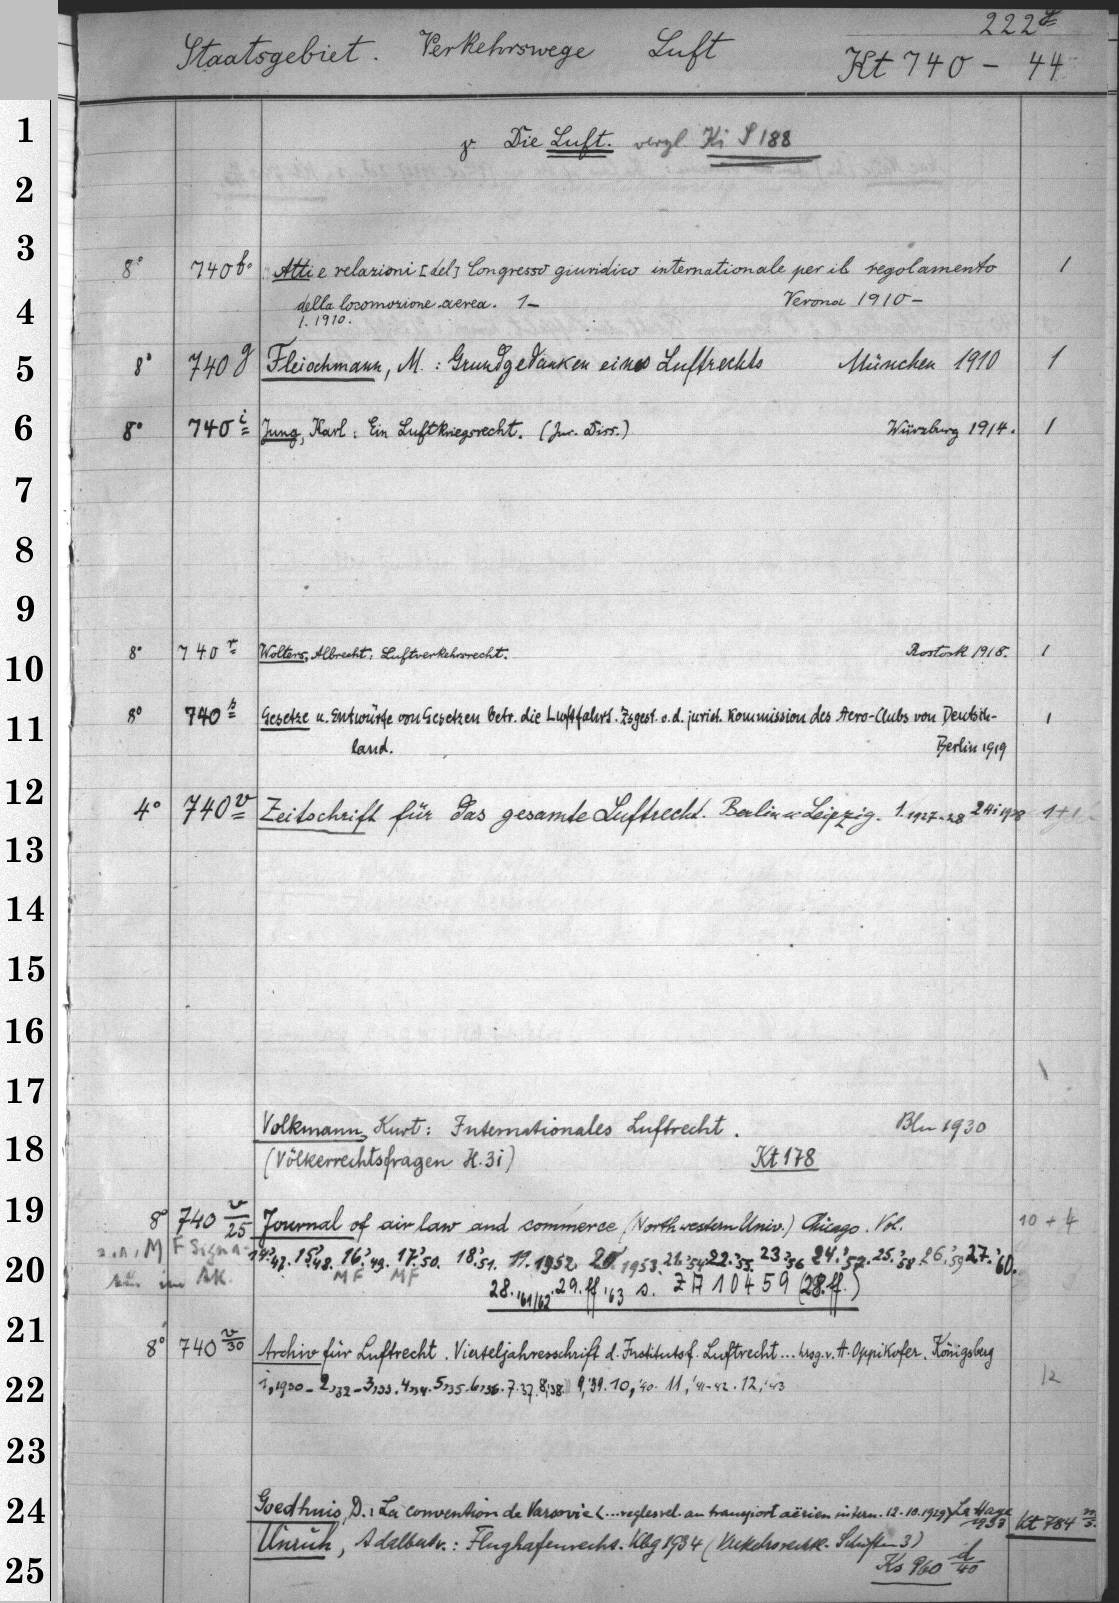 222
Staatsgebiet. Verkehrswege Luft Kt 740 - 44
1
γ. Die Luft. vergl. Ki S 188
2
3
8° 740 b. Atti e relazioni [del] Congresso giuridico internationale per il regolamento 1
della locomozione aerea. 1- Verona 1910-
4
1. 1910.
5
8° 740 g Fleischmann, M.: Grundgedanken eines Luftrechts München 1910 1
6
8° 740 i Jung, Karl: Ein Luftkriegsrecht. (Jur. Diss.) Würzburg 1914. 1
7
8
9
10
8° 740 r Wolters, Albrecht: Luftverkehrsrecht. Rostock 1918. 1
11
8° 740 s Gesetze u. Entwürfe von Gesetzen betr. die Luftfahrt. Zsgest. v. d. jurist. Kommission des Aero-Clubs von Deutsch- 1
land. Berlin 1919
12
4° 740 v Zeitschrift für das gesamte Luftrecht. Berlin u. Leipzig. 1. 1927-28 1+1
13
14
15
16
17
Volkmann, Kurt: Internationales Luftrecht. Bln 1930
18
(Völkerrechtsfragen H. 31) Kt 178
19
8° 740 v/25 Journal of air law and commerce (Northwestern Univ.) Chicago. Vol. 10 + 4
MF Signa-
14.'47. 15.'48. 16.'49. 17.'50. 18.'51. 19. 1952. 20. 1953. 21.'54 22.'55. 23.'56 24.'57. 25.'58. 26.'59 27.'60.
20
MF MF
28. '61/62. 29. ff '63 s. ZA 10459 (28. ff.)
21
8° 740 v/30 Archiv für Luftrecht. Vierteljahresschrift d. Instituts f. Luftrecht... hrsg. v. A. Oppikofer. Königsberg
22
1, 1930 - 2,32 - 3,33. 4,34. 5,35. 6,36. 7,37. 8,38. 9,'39. 10,'40. 11,'41-42. 12,'43 12
23
24
Goedhuis, D.: La convention de Varsovie (... règles rel. au transport aérien intern. 12.10.1929) La Haye 1933 Kt 784
Unruh, Adalbert v.: Flughafenrecht. Kbg 1934 (Verkehrsrechtl. Schriften 3)
25
Ks 960 d/40